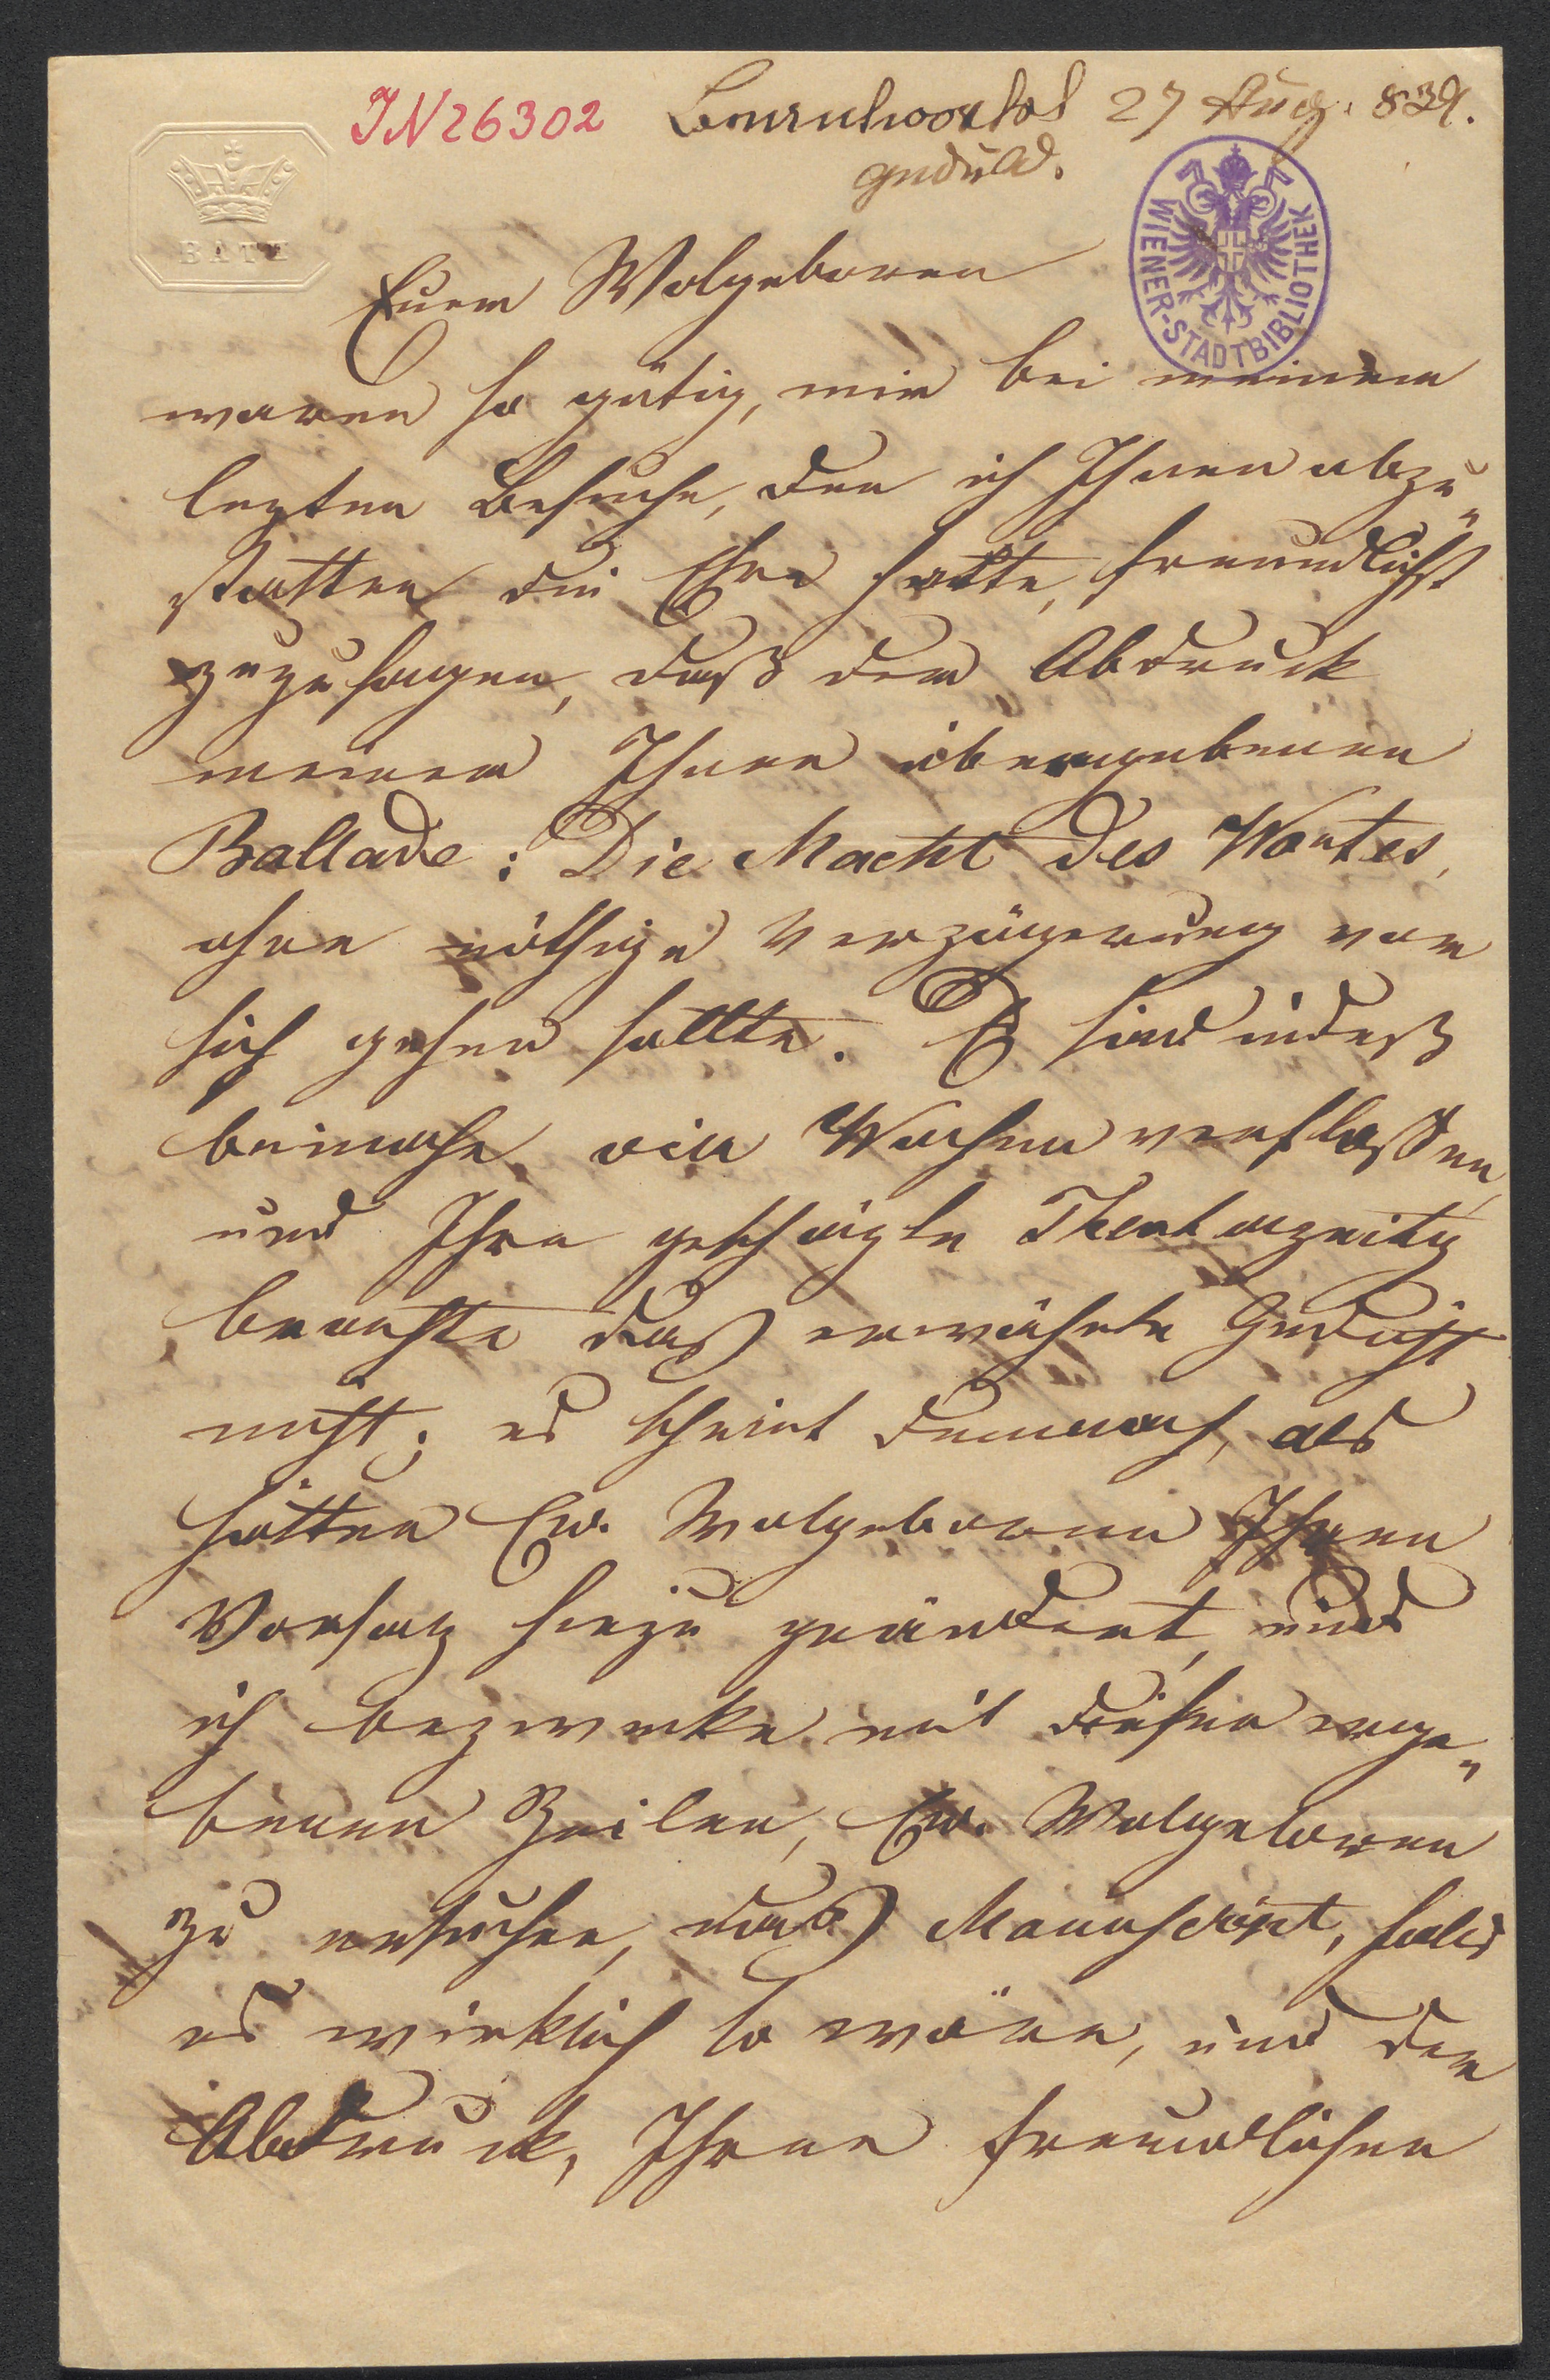 IN 26302
27 Aug. 839.
BATH
WIENER-STADTBIBLIOTHEK
Euer Wolgeboren
waren so gütig, mir bei meinem
lezten Besuche, den ich Ihnen abzu„
statten die Ehre hatte, freundlichst
zuzusagen, daß der Abdruck
meiner Ihnen übergebenen
Ballade: Die Macht des Wortes,
ohne nöthige Verzögerung vor
sich gehen sollte. Es sind indeß
beinahe vier Wochen verflossen,
und Ihre geschäzte Theaterzeitg
brachte das erwähnte Gedicht
nicht; es scheint demnach, als
hätten Ew. Wolgeboren Ihren
Vorsaz hiezu geändert, und
ich bezwecke mit diesen erge„
benen Zeilen, Ew. Wolgeboren
zu ersuchen, das Manuscript, falls
es wirklich so wäre, und der
Abdruck, Ihrer freundlichen